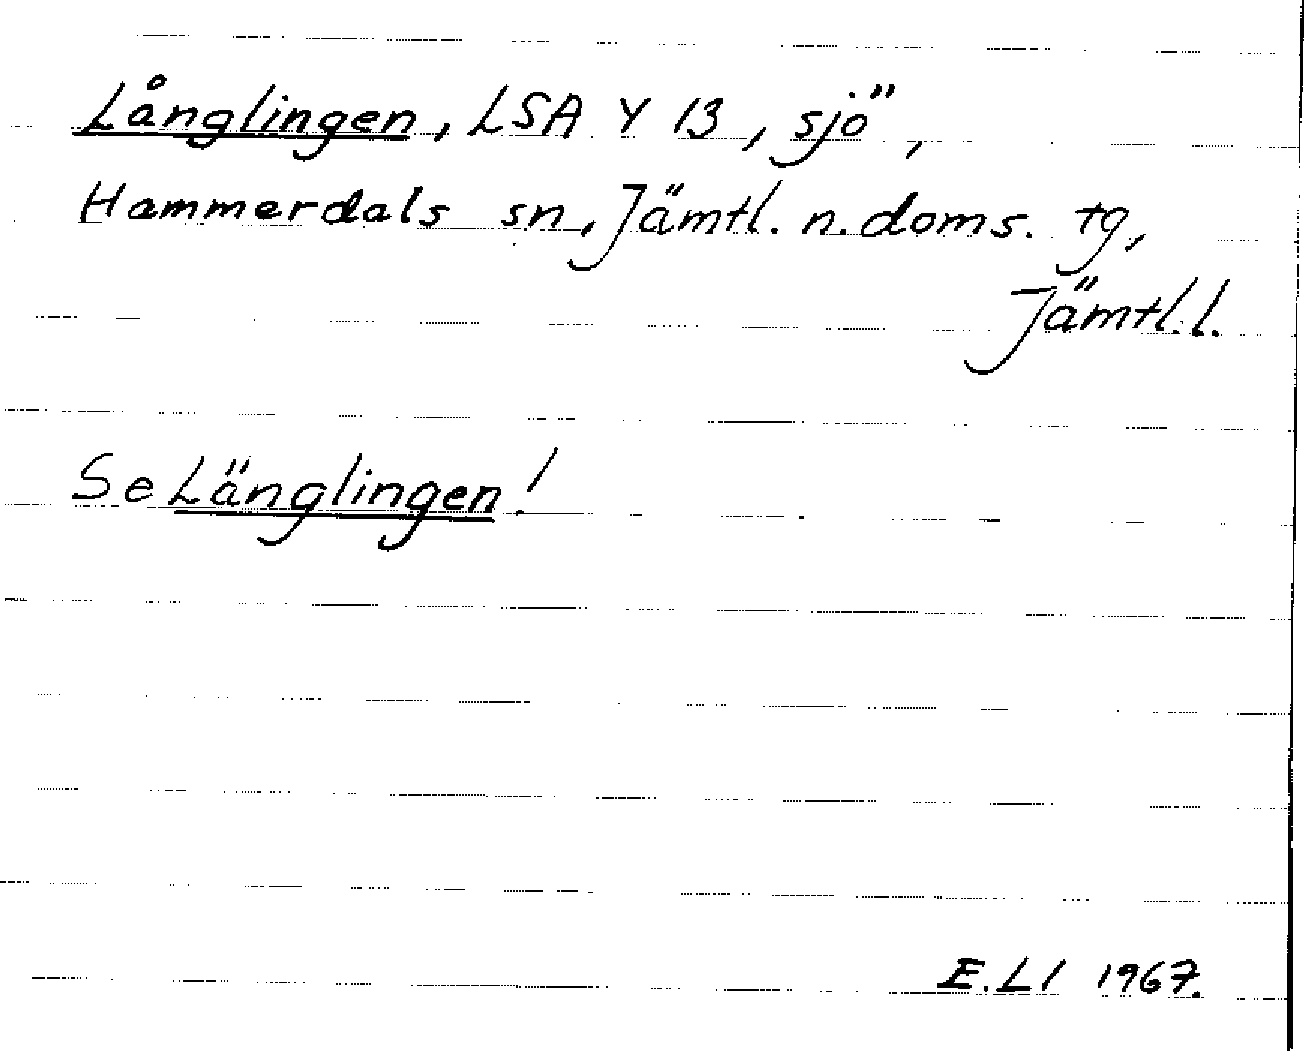 Långlingen, LSA Y 13, sjö,
Hammerdals sn, Jämtl. n. doms. tg,
Jämtl. l.
Se Länglingen!
E.Ll 1967.